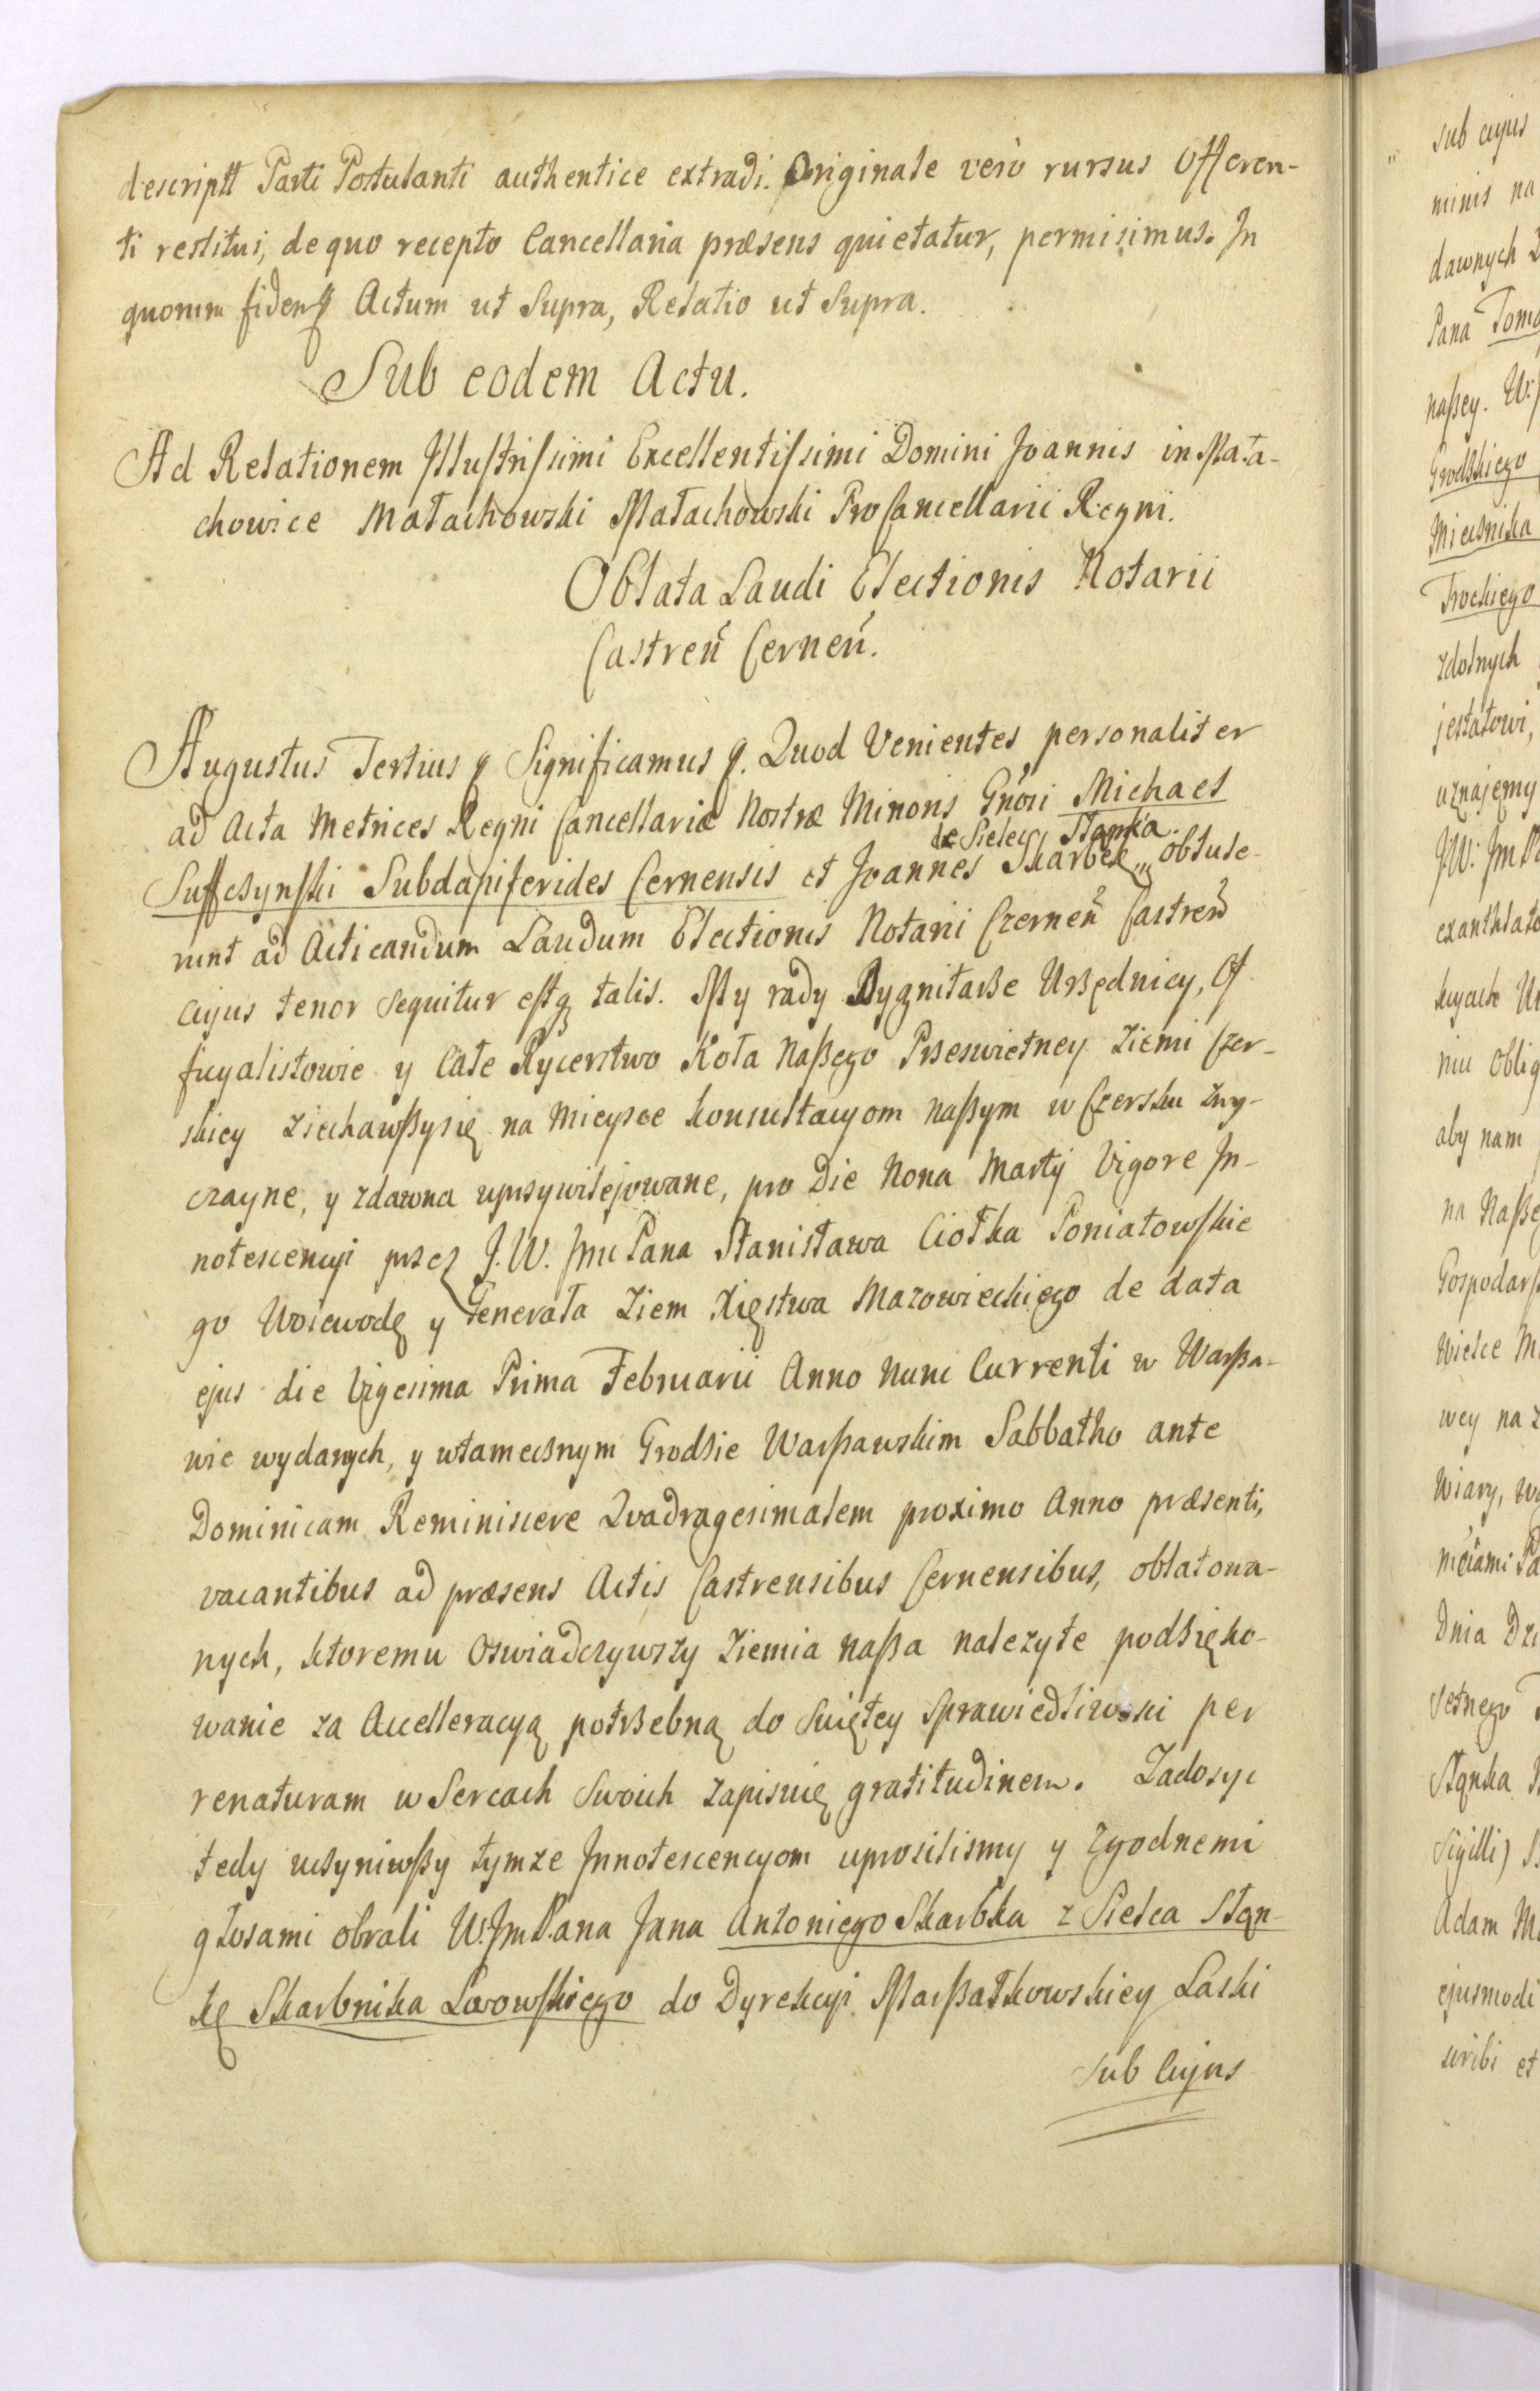 descriptt Parti Postulanti authentice extradi. Originale verò rursus Offeren-
ti restitui, de quo recepto Cancellaria præsens quietatur, permisimus. In
quorum fidem Actum ut Supra, Relatio ut Supra.
Sub eodem Actu.
Ad Relationem Illustrissimi Excellentissimi Domini Joannis in Mała-
chowice Małachowski Małachowski ProCancellarii Regni.
Oblata Laudi Electionis Notarii
Castreń Cerneń.
Augustus Tertius Significamus Quod Venientes personaliter
ad Acta Metrices Regni Cancellariæ Nostræ Minoris Gnõsi Michael
de Sielec Słąmka
Suffczynski Subdapiferides Cernensis et Joannes Skarbek „ obtule-
runt ad Acticandum Laudum Electionis Notarii Czerneń Castreń
cujus tenor sequitur estq talis. My rady Dygnitarze Urzędnicy, Of
ficyalistowie y Całe Rycerstwo Koła Naszego Przeswietney Ziemi Czer-
skiey Ziechawszysię na Mieysce konsultacyom naszym w Czersku zwy-
czayne, y zdawna uprzywilejowane, pro Die Nona Martij Vigore In-
notescencyi przez J.W. Jmc Pana Stanisława Ciołka Poniatowskie
go Woiewodę y Generała Ziem Xięstwa Mazowieckiego de data
ejus die Vigesima Prima Februarii Anno Nunc Currenti w Warsza-
wie wydanych, y wtamecznym Grodzie Warszawskim Sabbatho ante
Dominicam Reminiscere Quadragesimalem proximo Anno præsenti,
vacantibus ad præsens Actis Castrensibus Cernensibus, oblatowa-
nych, ktoremu Oswiadczywszy Ziemia nasza nalezyte podzięko-
wanie za Accelleracyą potrzebną do Swiętey Sprawiedliwości per
renaturam w Sercach Swoich zapisuię gratitudinem. Zadosyc
tedy uczyniwszy tymze Innotescencyom uprosilismy y zgodnemi
głosami obrali W. Jm Pana Jana Antoniego Skarbka z Sielca Słąn-
kę Skarbnika Lwowskiego do Dyrekcyi Marszałkowskiey Laski
Sub Cujus
sub cujus
minis na
dawnych
Pana Toma
naszey. W.
Grodzkiego
Miecznika
Trockiego
zdolnych
jestatowi,
uznajemy
J.W. Jm
exanthlato
niu Oblig
aby nam
na Nasze
Gospodars
Wielce M
wey na z
Wiary, wy
Dnia
Setnego
Słąnka
Sigilli)
Adam M
ejusmodi
scribi et